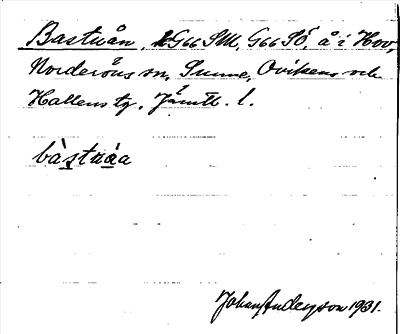 Bastuån, G66 SV, G66 SÖ, å i Hov,
Norderöns sn, Sunne, Ovikens och
Hallens tg. Jämtl. l.
bàstuåa
Johan Anderson 1931.